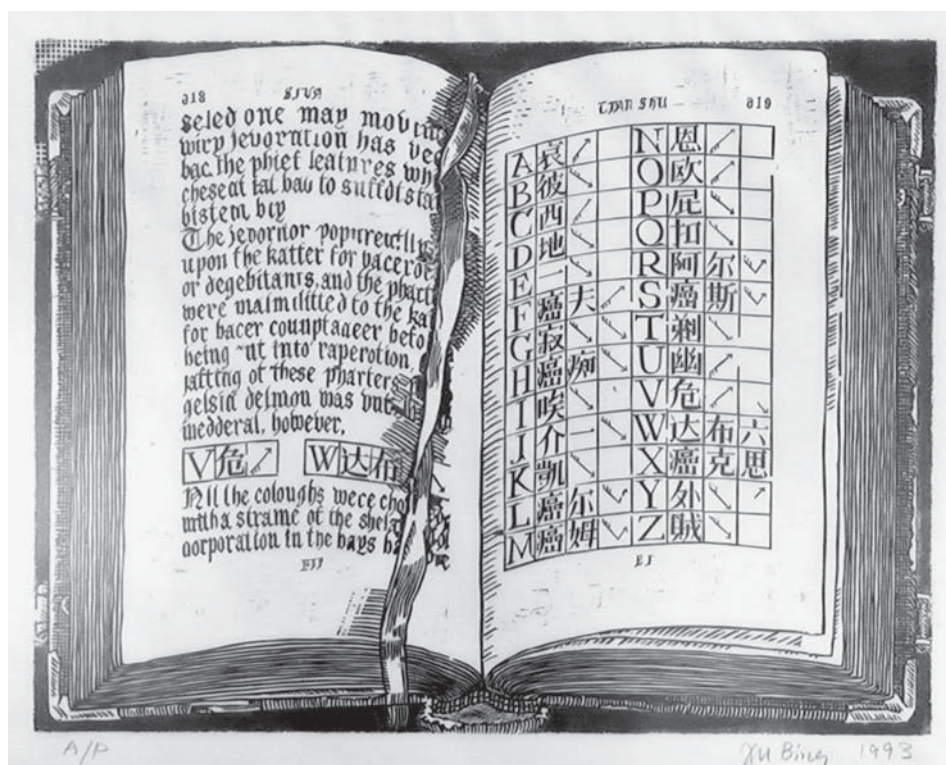 918 SIVA
seled one may mov
wiry jevoration has ve
bac. the phiet leatnres wh
cheseat tal bau to suffdi sta
bistem biy
The jevornor popurewlly
upon the katter for bacerde
or degebitants, and the pharct
were malmilitled to the ka
for bacer counptaqeer befo
being ~nt into raperotion
jafting of these pharters
gelsia delmon was vut
medderal, however,
V危 W达布
Nll the coloughs wece cho
mtth a strame ot the shel
aorporation in the bays b
EIJ
TJAN SHU 919
A哀 N恩
B彼 O欧
C西 P屁
D地 Q扣
E一 R阿尔
F癌夫 S癌斯
G寂 T剃
H癌痴 U幽
I唉 V危
J介 W达布六
K凯 X癌克思
L癌尔 Y处
M癌姆 Z贼
EJ
A/P Xu Bing 1993